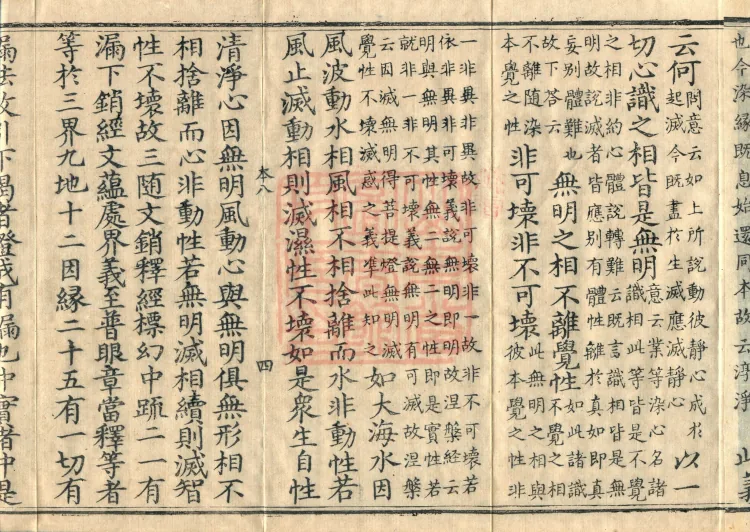 也今染緣既息始還同本故云淳淨
云何問意云如上所說動彼靜心成於
起滅今既盡於生滅應滅靜心以一
切心識之相皆是無明意云業等染心名諸
識相此等皆是不覺
之相非約心體說轉難云既言識相皆是無
明故說滅者皆應別有體性離於真如即真
妄別體難也
故下答云無明之相不離覺性如此諸識
不覺之相
不離隨染
本覺之性非可壞非不可壞此無明之相與
彼本覺之性非
一非異非異故非可壞非一故非不可壞若
依非異非可壞義說無明即明故涅槃經云
明與無明其性無二無二之性即是實性若
就非一非不可壞義說無明有可滅故涅槃
云因滅無明得菩提燈無明滅
覺性不壞滅惑之義準此知之如大海水因
風波動水相風相不相捨離而水非動性若
風止滅動相則滅濕性不壞如是眾生自性
本八 四
清淨心因無明風動心與無明俱無形相不
相捨離而心非動性若無明滅相續則滅智
性不壞故三隨文銷釋經標幻中䟽二一有
漏下銷經文蘊處界義至普眼章當釋等者
等於三界九地十二因緣二十五有一切有